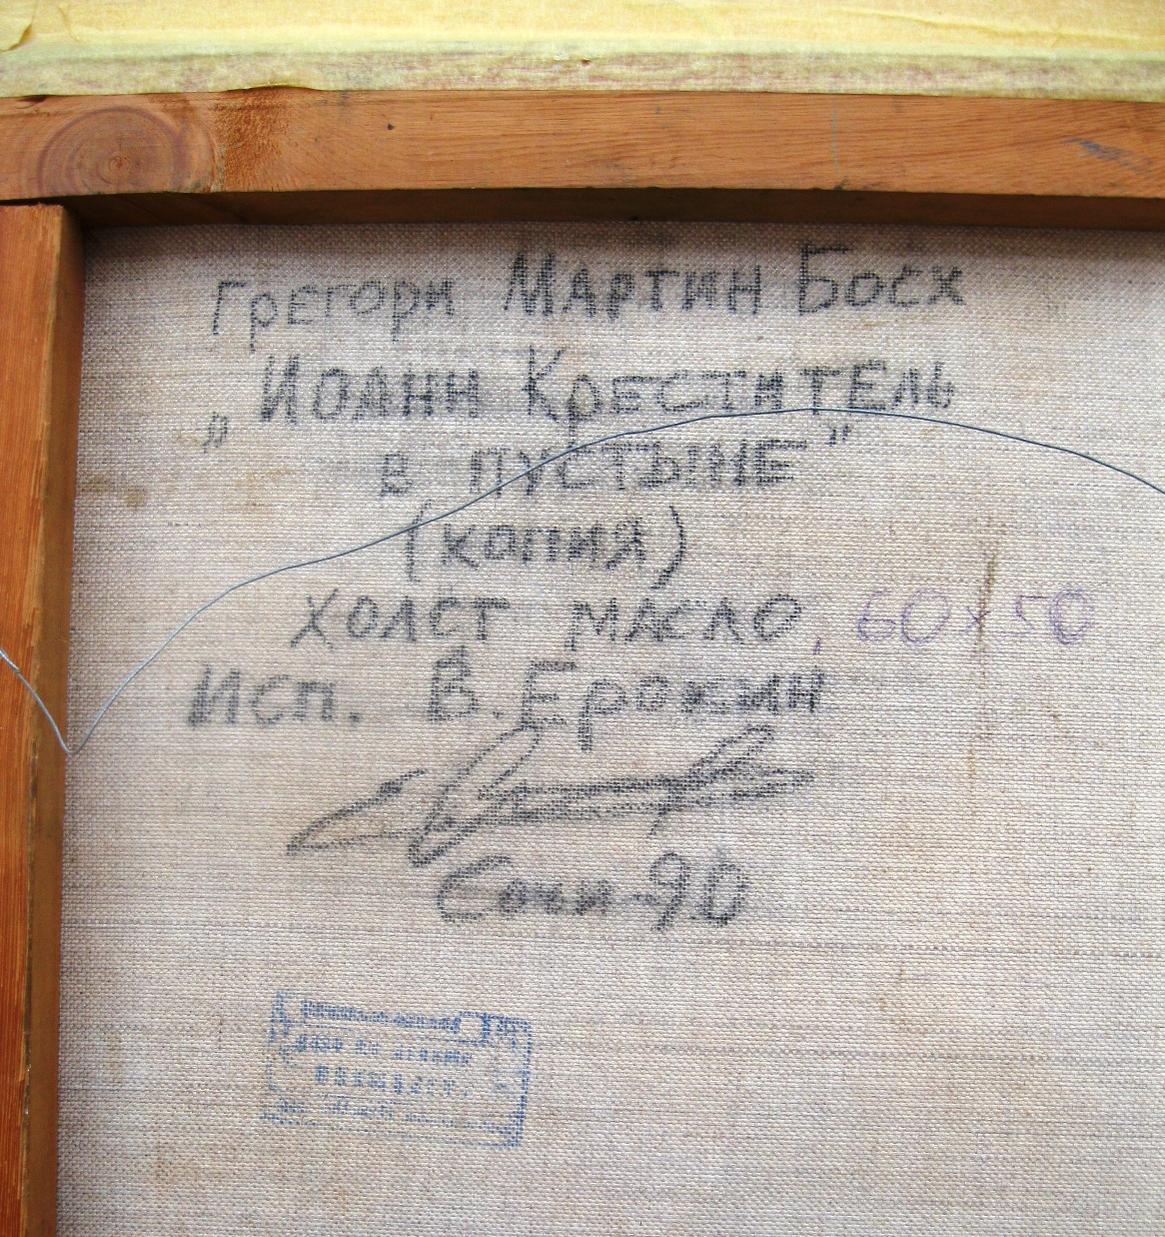 Грегори Мартин Босх
„Иоанн Креститель
в пустыне”
(копия)
холст масло, 60x50
Исп. В. Ерохин
Сочи-90